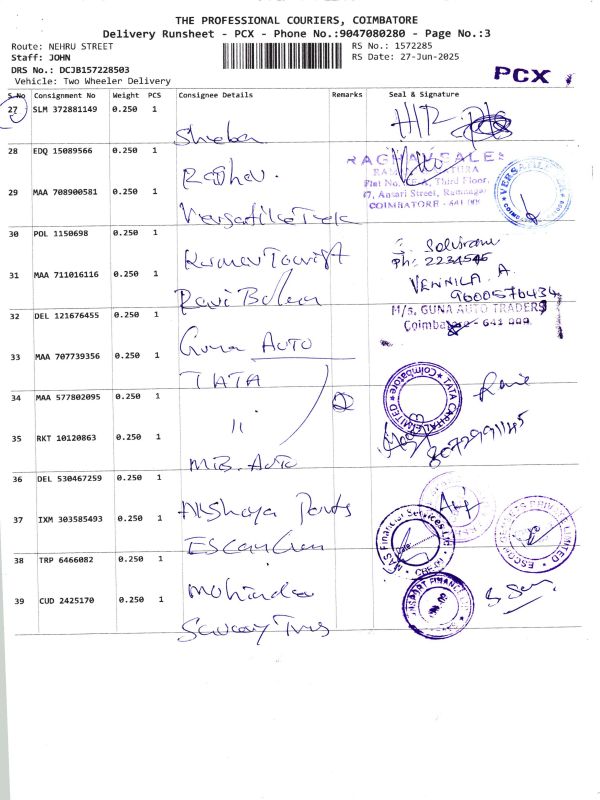 THE PROFESSIONAL COURIERS, COIMBATORE
Delivery Runsheet - PCX - Phone No.:9047080280 - Page No.:3
Route: NEHRU STREET
RS No.: 1572285
Staff: JOHN
RS Date: 27-Jun-2025
DRS No.: DCJB157228503
Vehicle: Two Wheeler Delivery
PCX
S.No Consignment No Weight PCS Consignee Details Remarks Seal & Signature
27 SLM 372881149 0.250 1
Sheeba
28 EDQ 15089566 0.250 1
Raghav.
RAGHAV SALES
Flat No.
Third Floor,
47, Ansari Street, Ramnagar
COIMBATORE - 641 009
29 MAA 708900581 0.250 1
30 POL 1150698 0.250 1
Kumar Tourist
Ph: 2234546
31 MAA 711016116 0.250 1
Ravi
VENNILA. A
9600576434
32 DEL 121676455 0.250 1
Guna AUTO
M/s. GUNA AUTO TRADERS
Coimbatore - 641 009
33 MAA 707739356 0.250 1
TATA
TATA CAPITAL LIMITED
Coimbatore
34 MAA 577802095 0.250 1
"
35 RKT 10120863 0.250 1
M.B. Auto
36 DEL 530467259 0.250 1
Akshaya Parts
37 IXM 303585493 0.250 1
MAS Financial Services Ltd
CBE-01
PRIVATE LIMITED
38 TRP 6466082 0.250 1
Mohindra
39 CUD 2425170 0.250 1